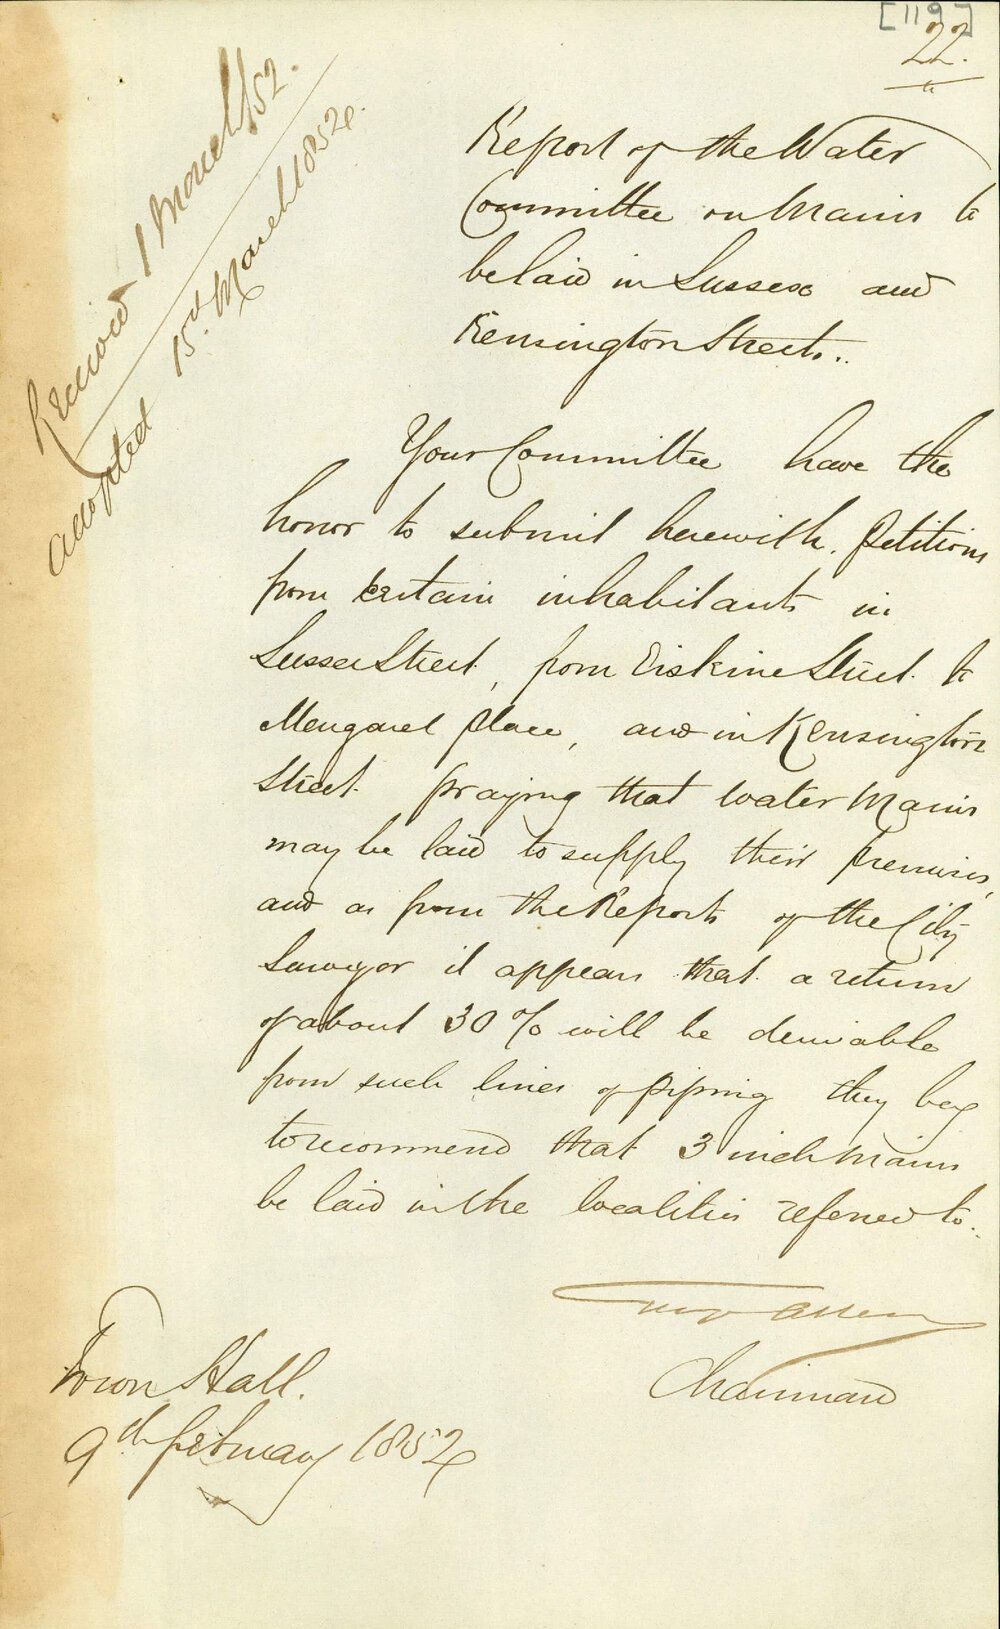 [119]
22.
Received 1 March/52.
Adopted 15th March 1852
Report of the Water
Committee on Mains to
be laid in Sussex and
Kensington Streets..
Your Committee have the
honor to submit herewith. Petitions
from certain inhabitants in
Sussex Street, from Erskine Street to
Margaret Place, and in Kensington
Street praying that water Mains
may be laid to supply their premises,
and as from the Reports of the City
Surveyor it appears that a return
of about 30 % will be derivable
from such lines of piping they beg
to recommend that 3 inch Mains
be laid in the localities referred to.
Allen
Chairman
Town Hall.
9th February 1852